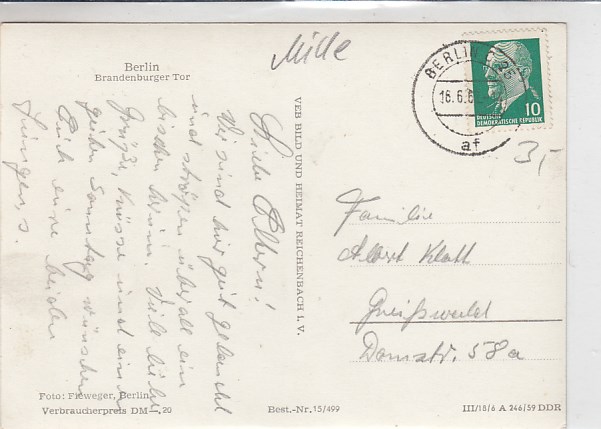 Mitte
Berlin
Brandenburger Tor
BERLIN C 25
16.6.6
af
10
DEUTSCHE
DEMOKRATISCHE REPUBLIK
3,-
Liebe Eltern!
Wir sind hier gut gelandet
und überall ein
bischen herum. Viele liebe
Grüße, Küsse und einen
guten Sonntag wünschen
Euch eine beiden
Jungens.
VEB BILD UND HEIMAT REICHENBACH I. V.
Familie
Albert Klatt
Greifswald
Domstr. 58a
Foto: Fieweger, Berlin
Verbraucherpreis DM —,20
Best.-Nr. 15/499
III/18/6 A 246/59 DDR